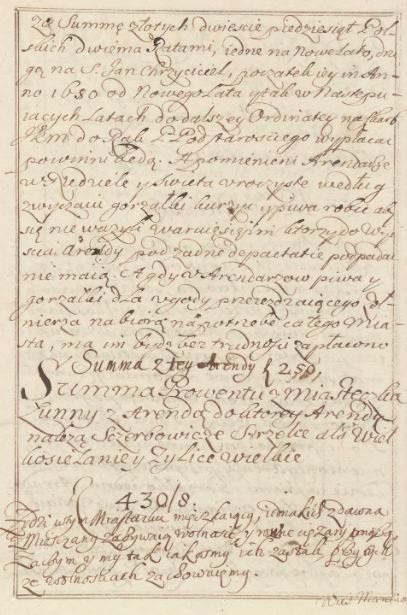 za Summę złotych dwiescie piedziesiąt Pol-
skich dwiema Ratami, iedne na Nowe Lato, dru
gą na S. Jan Chrzyciciel, początek iey in An-
no 1680 od Nowego Lata y tak w Nastepu-
iących Latach do dalszey Ordinatey na skarb
JKM do Rąk P. Podstarosciego wypłacac
powinni będą. A pomienieni Arendarze
w Niedziele y Swieta vroczyste według
zwyczaiu gorzałki kurzyc y piwa robic ab
się nie wazyli
Arendy pod zadne depactatie podpadac
nie maią. A gdy v Arendarzow piwa y
gorzałki dla vgody przeiezdzaiącego zoł-
nierza nabiorą na potrzobę całego Mia-
sta, ma im bydz bez trudnosci zapłacono
Summa z tey Arendy f 250
Summa Prowentu z Miasteczka
Zunny z Arendą do ktorey Arendy
nalezą Sczerbowicze Strzelce als Wiel
kosielanie y Zylice wielkie
f 430/8.
Miasteczku mieszkaiący, iż maią zdawna
wolnosc y
my tak iakosmy ich zastali przy tych
ze wolnosciach zachowuiemy.